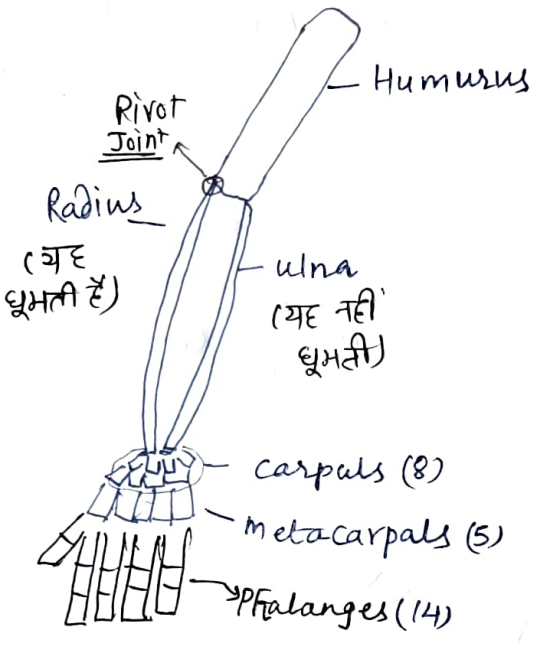 Humurus
Pivot
Joint
Radius
(यह
घूमती है)
ulna
(यह नहीं
घूमती)
Carpals (8)
metacarpals (5)
Phalanges (14)